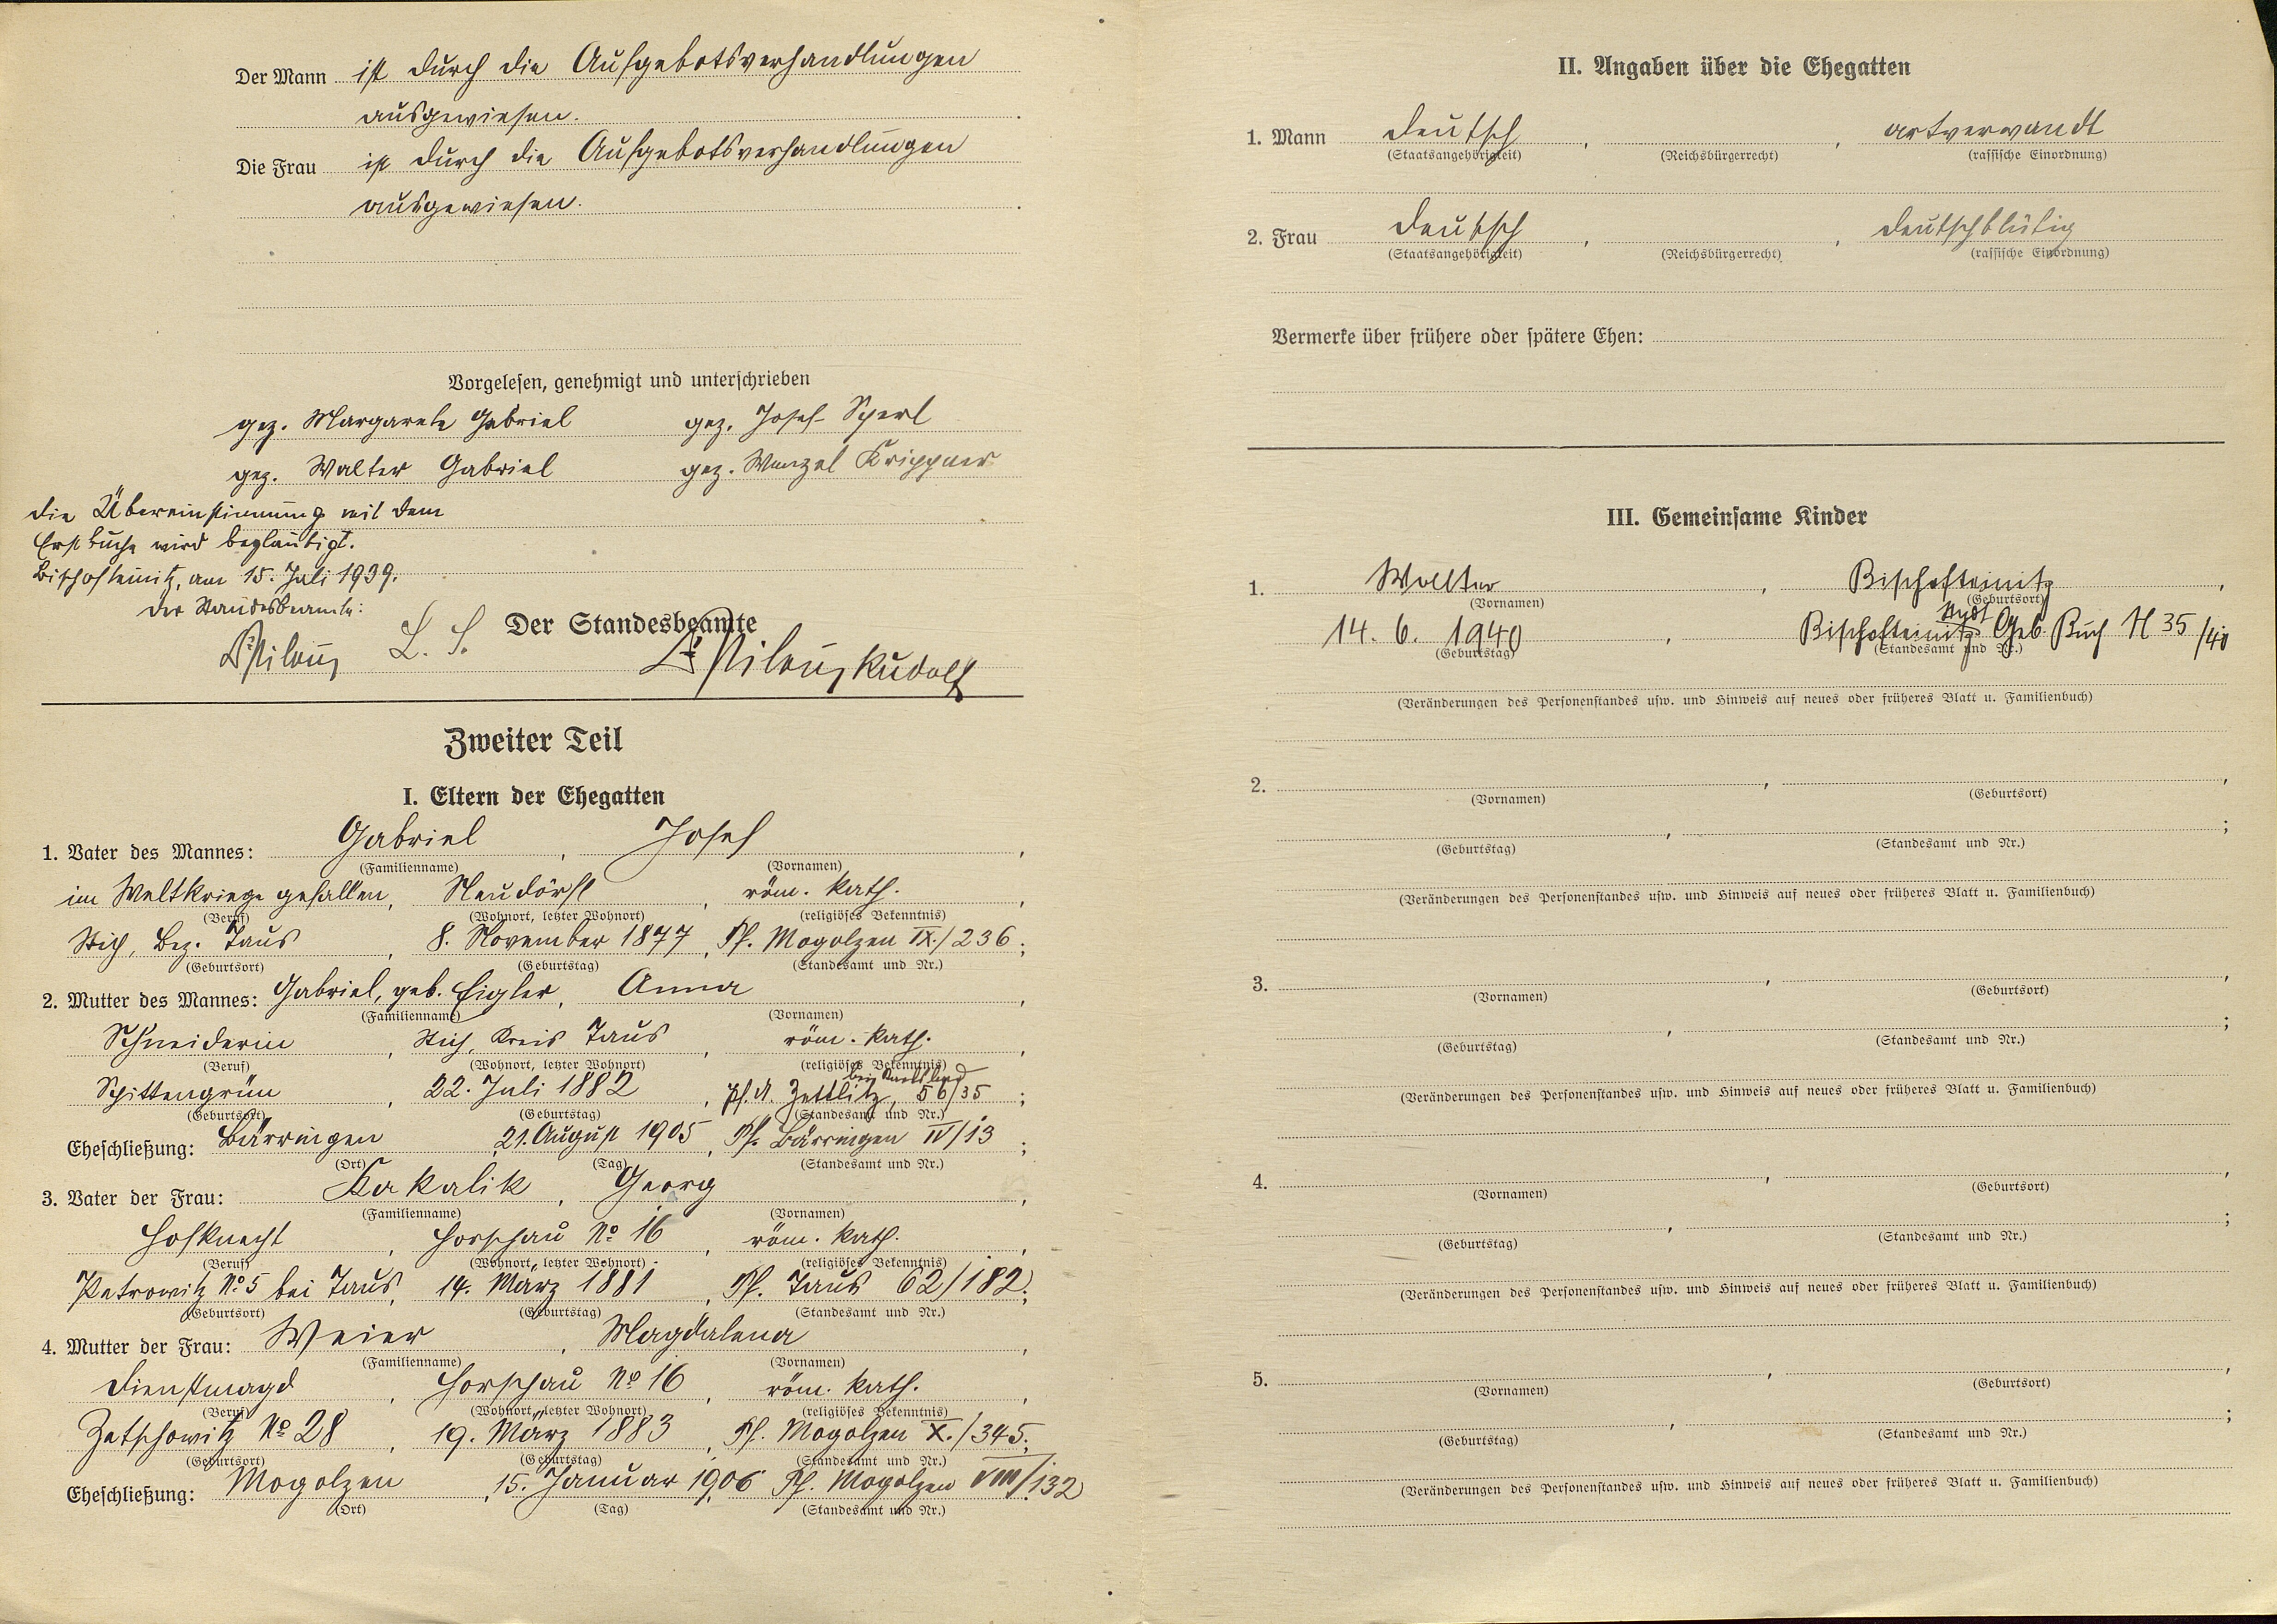 Der Mann ist durch die Aufgebotsverhandlungen
ausgewiesen.
Die Frau ist durch die Aufgebotsverhandlungen
ausgewiesen.
Vorgelesen, genehmigt und unterschrieben
gez. Margarete Gabriel gez. Josef Sperl
gez. Walter Gabriel gez. Wenzel Krippner
die Übereinstimmung mit dem
Erstbuche wird beglaubigt.
Bischofteinitz, am 15. Juli 1939.
Der Standesbeamte:
L. S. Der Standesbeamte
Rudolf
Zweiter Teil
I. Eltern der Ehegatten
1. Vater des Mannes: Gabriel, Josef,
(Familienname) (Vornamen)
im Weltkriege gefallen, Neudörfl, röm. kath.,
(Beruf) (Wohnort, letzter Wohnort) (religiöses Bekenntnis)
Stich, Bez. Taus, 8. November 1877, Pf. Mogolzen IX./236;
(Geburtsort) (Geburtstag) (Standesamt und Nr.)
2. Mutter des Mannes: Gabriel, geb. Eigler, Anna,
(Familienname) (Vornamen)
Schneiderin, Stich, Kreis Taus, röm. kath.,
(Beruf) (Wohnort, letzter Wohnort) (religiöses Bekenntnis)
bei
Spittengrün, 22. Juli 1882, Pf. A. Zettlitz, 56/35;
(Geburtsort) (Geburtstag) (Standesamt und Nr.)
Eheschließung: Bärringen, 21. August 1905, Pf. Bärringen IV/13;
(Ort) (Tag) (Standesamt und Nr.)
3. Vater der Frau: Kakalik, Georg,
(Familienname) (Vornamen)
Hofknecht, Horschau No 16, röm. kath.,
(Beruf) (Wohnort, letzter Wohnort) (religiöses Bekenntnis)
Petrowitz No 5 bei Taus, 14. März 1881, Pf. Taus 62/182;
(Geburtsort) (Geburtstag) (Standesamt und Nr.)
4. Mutter der Frau: Weier, Magdalena,
(Familienname) (Vornamen)
Dienstmagd, Horschau No 16, röm. kath.,
(Beruf) (Wohnort, letzter Wohnort) (religiöses Bekenntnis)
Zetschowitz No 28, 19. März 1883, Pf. Mogolzen X./345;
(Geburtsort) (Geburtstag) (Standesamt und Nr.)
Eheschließung: Mogolzen, 15. Januar 1906, Pf. Mogolzen VIII/132
(Ort) (Tag) (Standesamt und Nr.)
II. Angaben über die Ehegatten
1. Mann deutsch, , artverwandt
(Staatsangehörigkeit) (Reichsbürgerrecht) (rassische Einordnung)
2. Frau deutsch, , deutschblütig
(Staatsangehörigkeit) (Reichsbürgerrecht) (rassische Einordnung)
Vermerke über frühere oder spätere Ehen:
III. Gemeinsame Kinder
1. Walter, Bischofteinitz,
(Vornamen) (Geburtsort)
Stadt
14. 6. 1940, Bischofteinitz Geb. Buch N 35/40
(Geburtstag) (Standesamt und Nr.)
(Veränderungen des Personenstandes usw. und Hinweis auf neues oder früheres Blatt u. Familienbuch)
2. , ,
(Vornamen) (Geburtsort)
, ;
(Geburtstag) (Standesamt und Nr.)
(Veränderungen des Personenstandes usw. und Hinweis auf neues oder früheres Blatt u. Familienbuch)
3. , ,
(Vornamen) (Geburtsort)
, ;
(Geburtstag) (Standesamt und Nr.)
(Veränderungen des Personenstandes usw. und Hinweis auf neues oder früheres Blatt u. Familienbuch)
4. , ,
(Vornamen) (Geburtsort)
, ;
(Geburtstag) (Standesamt und Nr.)
(Veränderungen des Personenstandes usw. und Hinweis auf neues oder früheres Blatt u. Familienbuch)
5. , ,
(Vornamen) (Geburtsort)
, ;
(Geburtstag) (Standesamt und Nr.)
(Veränderungen des Personenstandes usw. und Hinweis auf neues oder früheres Blatt u. Familienbuch)